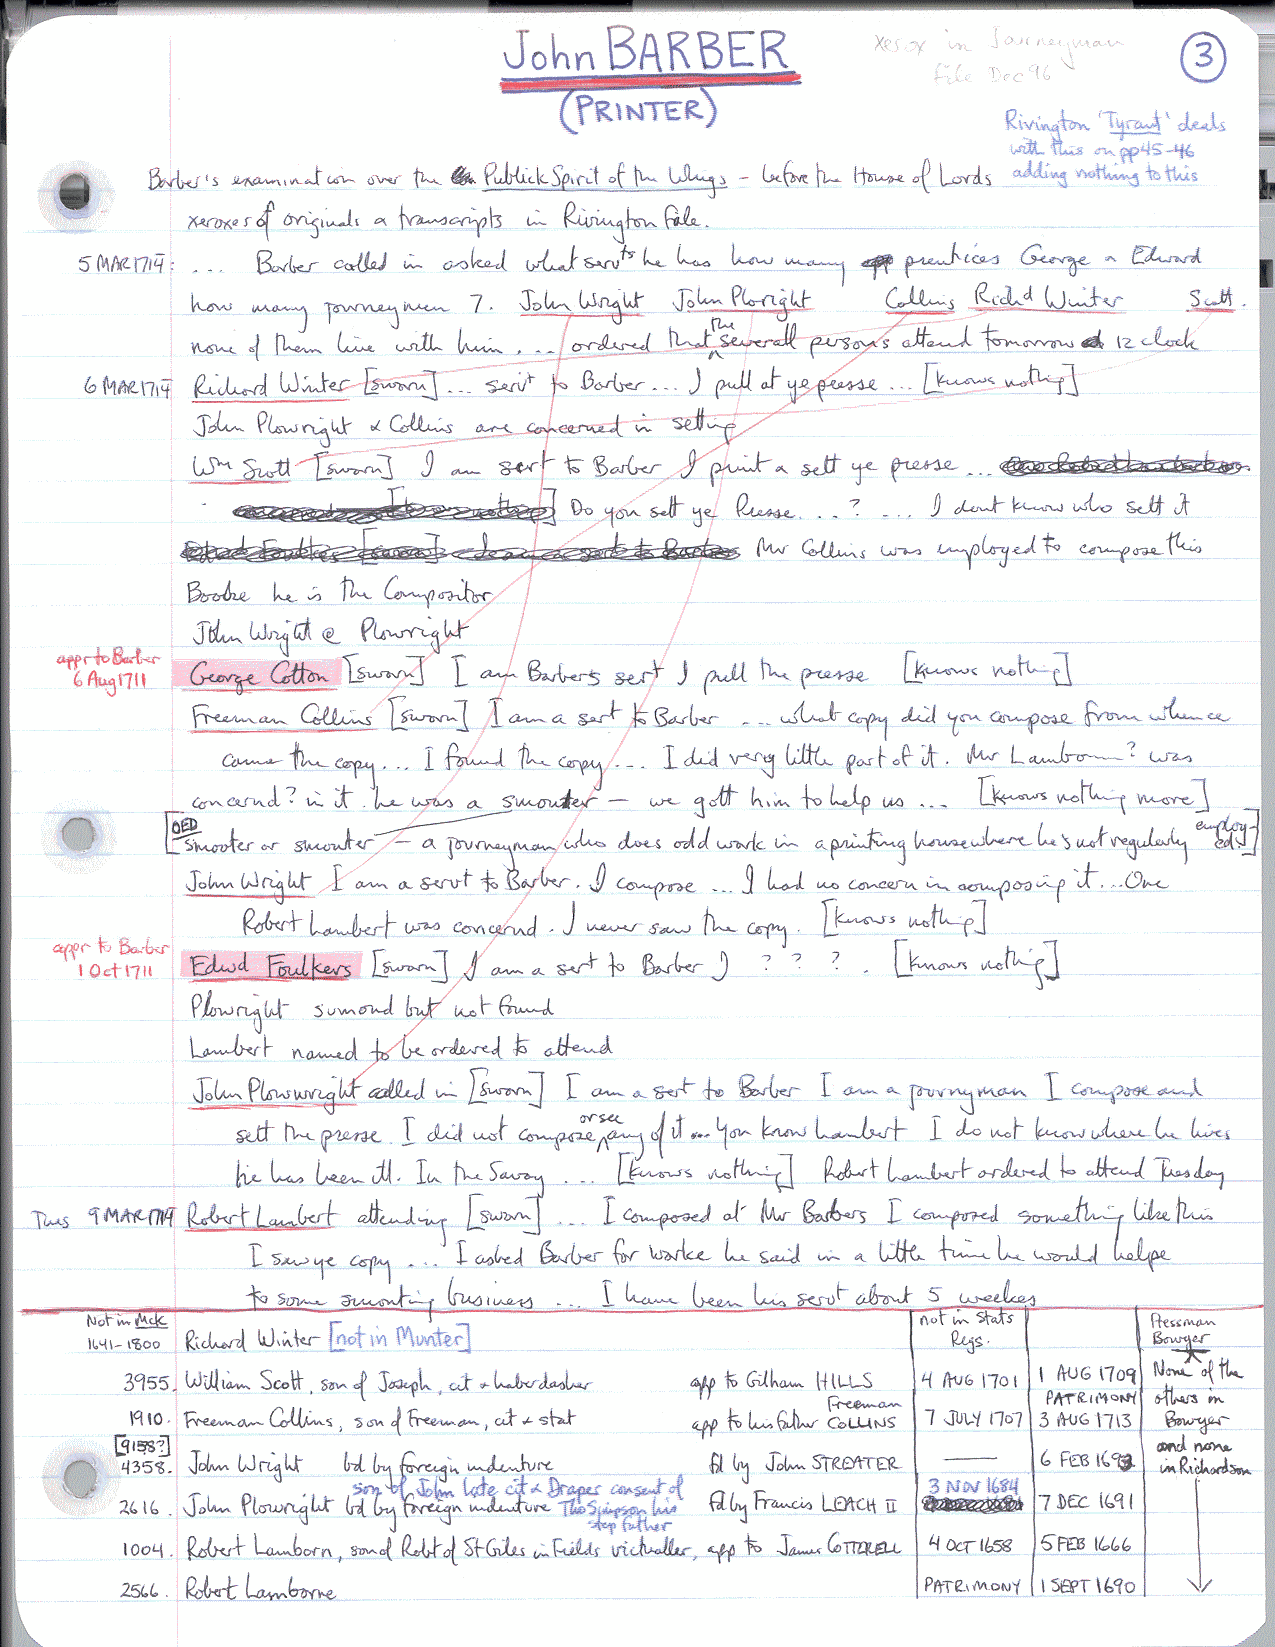 John BARBER
(PRINTER)
xerox in Journeyman
file Dec 96
3
Rivington 'Tyrant' deals
with this on pp 45-46
adding nothing to this
Barber's examination over the Publick Spirit of the Whigs - before the House of Lords
xeroxes of originals & transcripts in Rivington file.
5 MAR 171¾: ... Barber called in asked what servts he has how many prentices George & Edward
how many journeymen 7. John Wright John Ploright Collins Richd Winter Scott.
none of them live with him. ... ordered that the severall persons attend tomorrow 12 clock
6 MAR 171¾ Richard Winter [sworn] ... servt to Barber ... I pull at ye presse ... [knows nothing]
John Plowright & Collins are concerned in setting
Wm Scott [sworn] I am sert to Barber I print & sett ye presse ...
Do you sett ye Presse ... ? ... I dont know who sett it
Mr Collins was employed to compose this
Booke he is the Compositor
John Wright @ Plowright
appr to Barber
6 Aug 1711
George Cotton [sworn] I am Barbers sert I pull the presse [knows nothing]
Freeman Collins [sworn] I am a sert to Barber ... what copy did you compose from whence
came the copy ... I found the copy ... I did very little part of it. Mr Lamborn? was
concernd? in it he was a smouter - we gott him to help us ... [knows nothing more]
[OED smooter or smouter - a journeyman who does odd work in a printing house where he's not regularly employed.]
John Wright I am a servt to Barber. I compose ... I had no concern in composing it ... One
Robert Lambert was concernd. I never saw the copy. [knows nothing]
appr to Barber
1 Oct 1711
Edwd Foulkes [sworn] I am a sert to Barber I ? ? ? . [knows nothing]
Plowright sumond but not found
Lambert named to be ordered to attend
John Plowwright called in [sworn] I am a sert to Barber I am a journyman I compose and
sett the presse. I did not compose or see any of it ... you know Lambert I do not know where he lives
he has been ill. In the Savoy ... [knows nothing] Robert Lambert ordered to attend Tuesday
Tues 9 MAR 171¾ Robert Lambert attending [sworn] ... I composed at Mr Barbers I composed something like this
I saw ye copy ... I asked Barber for worke he said in a little time he would helpe
to some smouting business ... I have been his servt about 5 weekes
Not in McK
1641-1800
Richard Winter [not in Munter]
not in Stats
Regs.
Pressman
Bowyer
3955. William Scott, son of Joseph, cit & haberdasher app to Gilham HILLS 4 AUG 1701 1 AUG 1709
1910. Freeman Collins, son of Freeman, cit & stat app to his father Freeman COLLINS 7 JULY 1707 PATRIMONY 3 AUG 1713
[9158?]
4358. John Wright bd by foreign indenture fd by John STREATER — 6 FEB 1693
son of John late cit & Draper consent of
Tho Simpson his
step father
2616. John Plowright bd by foreign indenture fd by Francis LEACH II 3 NOV 1684 7 DEC 1691
1004. Robert Lamborn, son of Robt of St Giles in Fields victualler, app to James COTTERELL 4 OCT 1658 5 FEB 1666
2566. Robert Lamborne PATRIMONY 1 SEPT 1690
None of the
others in
Bowyer
and none
in Richardson